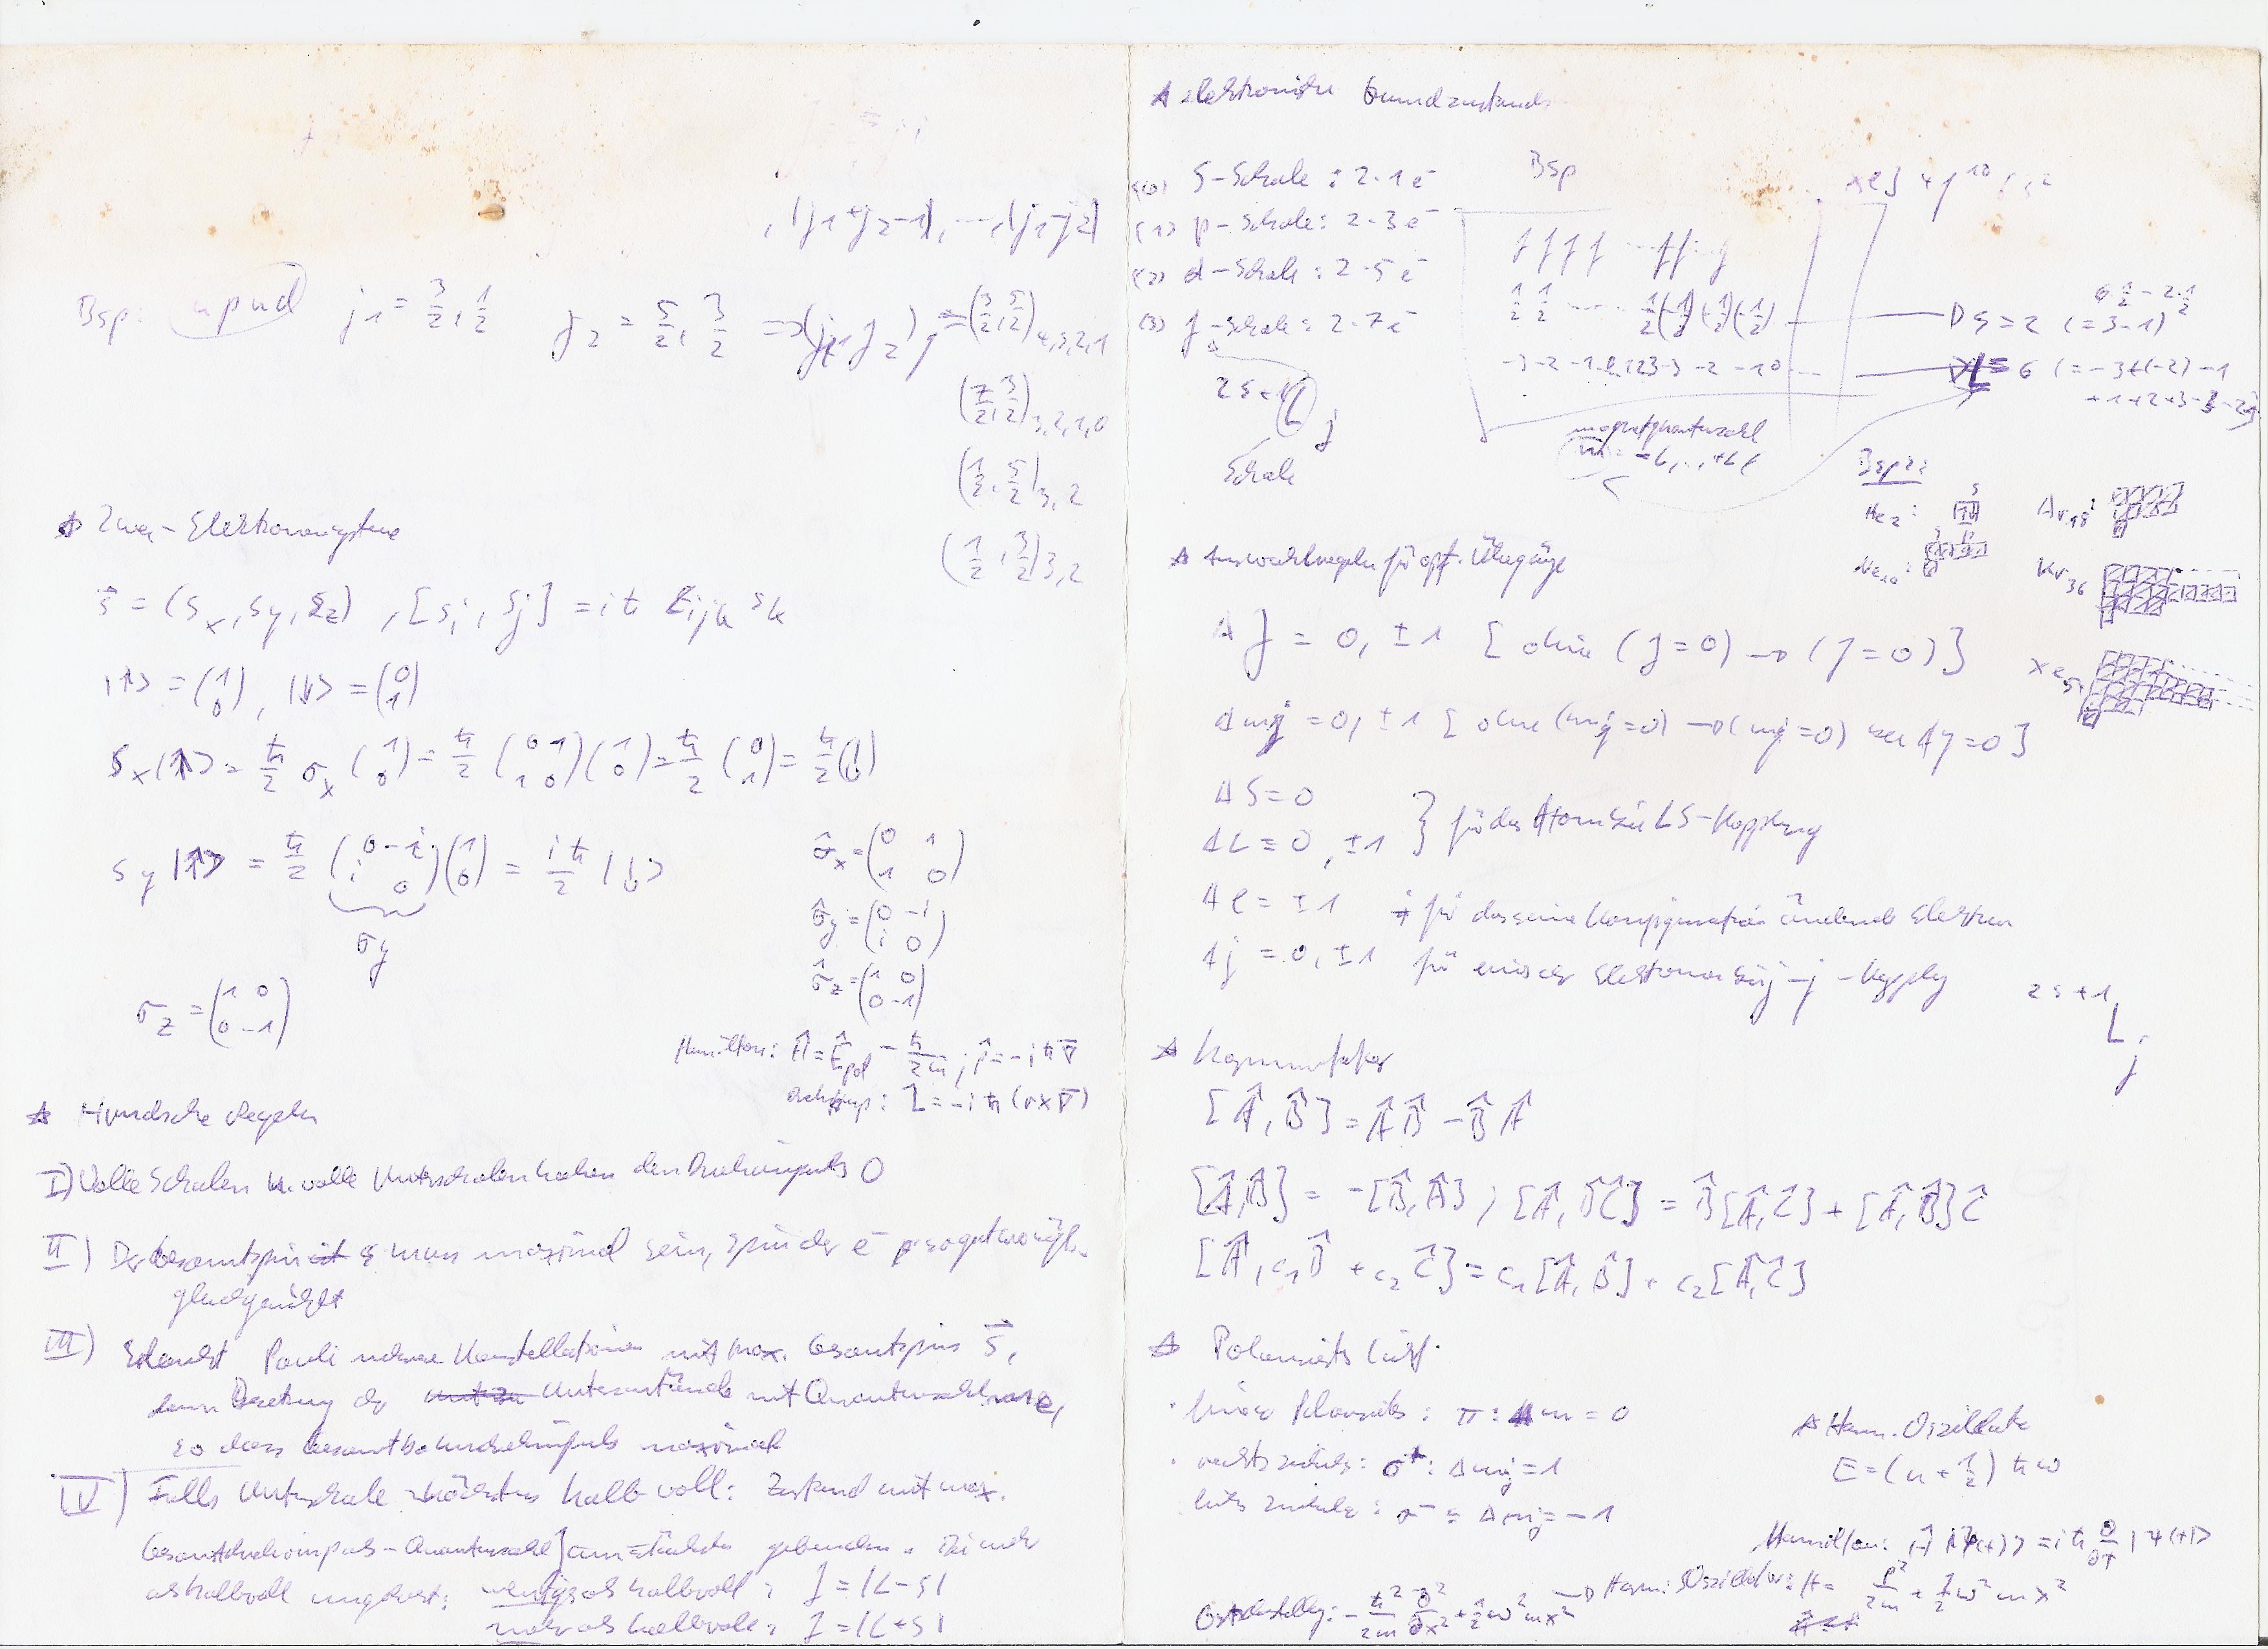 , (j₁+j₂-1), ..., |j₁-j₂|
Bsp: npnd j₁ = 3/2, 1/2 j₂ = 5/2, 3/2 => (j₁, j₂)_J = (3/2, 5/2)_4,3,2,1
(3/2, 3/2)_3,2,1,0
(1/2, 5/2)_3,2
(1/2, 3/2)_3,2
Zwei-Elektronensysteme
s⃗ = (s_x, s_y, s_z) , [s_i, s_j] = iħ ε_ijk s_k
|↑> = (1 0), |↓> = (0 1)
S_x|↑> = ħ/2 σ_x (1 0) = ħ/2 (0 1 1 0)(1 0) = ħ/2 (0 1) = ħ/2 |↓>
S_y|↑> = ħ/2 (0 -i i 0)(1 0) = iħ/2 |↓>
σ_y
σ_z = (1 0 0 -1)
σ̂_x = (0 1 1 0)
σ̂_y = (0 -i i 0)
σ̂_z = (1 0 0 -1)
Hamilton: Ĥ = Ê_pot - ħ/2m ; p̂ = -iħ∇
Drehimp: L̂ = -iħ (r×∇)
Hundsche Regeln
I) Volle Schalen u. volle Unterschalen haben den Drehimpuls 0
II) Der Gesamtspin S muss maximal sein, Spin der e⁻ so gut wie mögl.
gleichgerichtet
III) Erlaubt Pauli mehrere Konstellationen mit max. Gesamtspin S⃗,
dann Besetzung der Unterzustände mit Quantenzahl
so dass Gesamtbahndrehimpuls maximal
IV) Falls Unterschale höchstens halb voll: Zustand mit
Gesamtdrehimpuls-Quantenzahl J am stärksten gebunden. Bei mehr
als halbvoll umgekehrt: weniger als halbvoll: J = |L-S|
mehr als halbvoll: J = |L+S|
elektronische Grundzustände
(0) S-Schale : 2·1 e⁻
(1) p-Schale : 2·3 e⁻
(2) d-Schale : 2·5 e⁻
(3) f-Schale : 2·7 e⁻
2S+1 L J
Schale
Bsp Xe] 4f¹⁰ 6s²
f f f f ... f f f
1/2 1/2 ... 1/2 (-1/2)(-1/2)(-1/2)
-3 -2 -1 0 1 2 3 -3 -2 -1 0 ...
6·1/2 - 2·1/2
S = 2 (= 3-1)
L = 6 (= -3+(-2)-1
+1+2+3-3-2
Magnetquantenzahl
m = -L, .., +L
Bsp 2:
s
He₂ :
Ne₁₀ :
Ar₁₈ :
Kr₃₆
Xe₅₄
Auswahlregeln für opt. Übergänge
ΔJ = 0, ±1 [ohne (J=0) → (J=0)]
Δm_j = 0, ±1 [ohne (m_j=0) → (m_j=0) bei ΔJ=0]
ΔS = 0
ΔL = 0, ±1 } für das Atom bei LS-Kopplung
Δl = ±1 für das seine Konfiguration ändernde Elektron
Δj = 0, ±1 für eines der Elektronen bei j-j-Kopplung
2S+1 L J
Kommutator
[Â, B̂] = ÂB̂ - B̂Â
[Â, B̂] = -[B̂, Â] ; [Â, B̂Ĉ] = B̂[Â, Ĉ] + [Â, B̂]Ĉ
[Â, c₁B̂ + c₂Ĉ] = c₁[Â, B̂] + c₂[Â, Ĉ]
Polarisiertes Licht
· linear Polarisiertes : π : Δm = 0
· rechtszirkular : σ⁺ : Δm_j = 1
· linkszirkular : σ⁻ : Δm_j = -1
Harm. Oszillator
E = (n + 1/2) ħω
Hamilton: Ĥ |Ψ(t)> = iħ ∂/∂t |Ψ(t)>
Harm. Oszillator: H = p²/2m + 1/2 ω² m x²
Ortsdarstellung: - ħ²/2m ∂²/∂x² + 1/2 ω² m x²